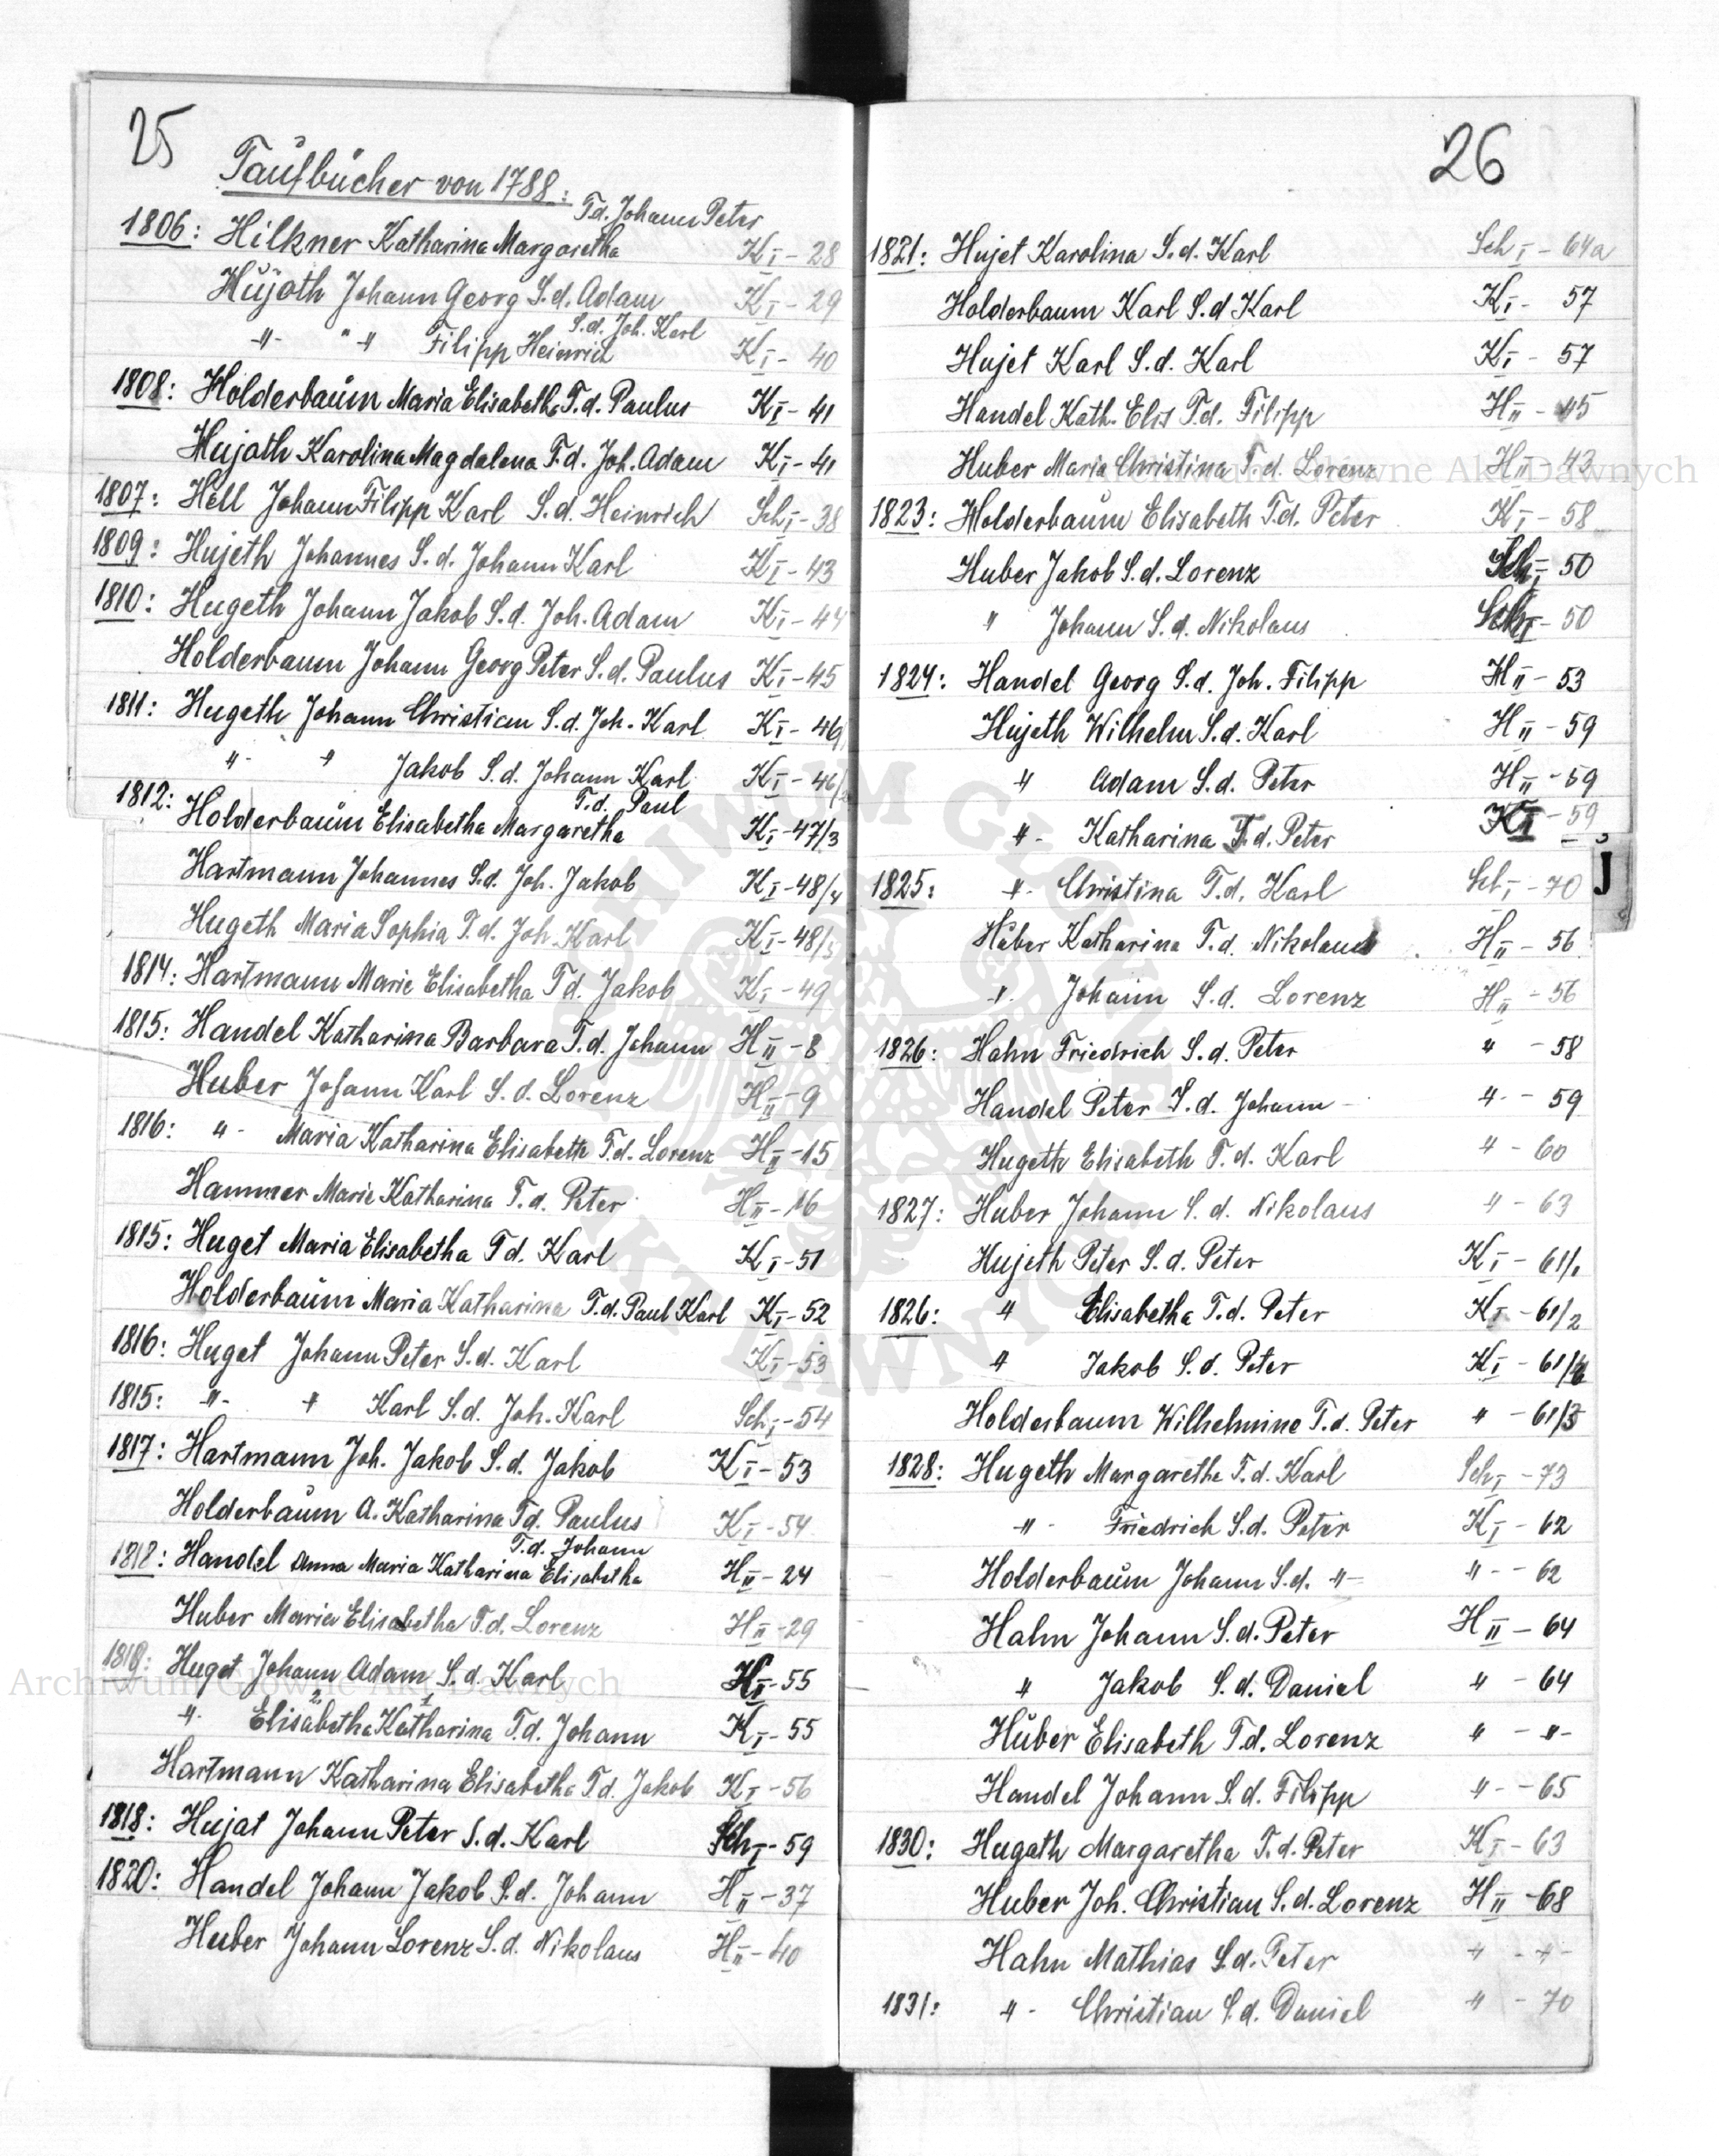 25
Taufbücher von 1788:
T.d. Johann Peter
1806: Hilkner Katharina Margaretha K I - 28
Hujoth Johann Georg S.d. Adam K I - 29
S.d. Joh. Karl
" " " Filipp Heinrich K I - 40
1808: Holderbaum Maria Elisabetha T.d. Paulus K I - 41
Hujath Karolina Magdalena T.d. Joh. Adam K I - 41
1807: Hell Johann Filipp Karl S.d. Heinrich Sch I - 38
1809: Hujeth Johannes S.d. Johann Karl K I - 43
1810: Hugeth Johann Jakob S.d. Joh. Adam K I - 44
Holderbaum Johann Georg Peter S.d. Paulus K I - 45
1811: Hugeth Johann Christian S.d. Joh. Karl K I - 46
" " Jakob S.d. Johann Karl K I - 46/2
T.d. Paul
1812: Holderbaum Elisabetha Margaretha K I - 47/3
Hartmann Johannes S.d. Joh. Jakob K I - 48/4
Hugeth Maria Sophia T.d. Joh. Karl K I - 48/5
1814: Hartmann Marie Elisabetha T.d. Jakob K I - 49
1815: Handel Katharina Barbara T.d. Johann H II - 8
Huber Johann Karl S.d. Lorenz H II - 9
1816: " Maria Katharina Elisabeth T.d. Lorenz H II - 15
Hammer Marie Katharina T.d. Peter H II - 16
1815: Huget Maria Elisabetha T.d. Karl K I - 51
Holderbaum Maria Katharina T.d. Paul Karl K I - 52
1816: Huget Johann Peter S.d. Karl K I - 53
1815: " " Karl S.d. Joh. Karl Sch I - 54
1817: Hartmann Joh. Jakob S.d. Jakob K I - 53
Holderbaum A. Katharina T.d. Paulus K I - 54
T.d. Johann
1818: Handel Anna Maria Katharina Elisabetha H II - 24
Huber Maria Elisabetha T.d. Lorenz H II - 29
1819: Huget Johann Adam S.d. Karl K I - 55
2 1
" Elisabetha Katharina T.d. Johann K I - 55
Hartmann Katharina Elisabetha T.d. Jakob K I - 56
1818: Hujat Johann Peter S.d. Karl Sch I - 59
1820: Handel Johann Jakob S.d. Johann H II - 37
Huber Johann Lorenz S.d. Nikolaus H II - 40
26
1821: Hujet Karolina S.d. Karl Sch I - 64a
Holderbaum Karl S.d Karl K I - 57
Hujet Karl S.d. Karl K I - 57
Handel Kath. Elis T.d. Filipp H II - 45
Huber Maria Christina T.d. Lorenz H II - 43
1823: Holderbaum Elisabeth T.d. Peter K I - 58
Huber Jakob S.d. Lorenz Sch I - 50
" Johann S.d. Nikolaus Sch I - 50
1824: Handel Georg S.d. Joh. Filipp H II - 53
Hujeth Wilhelm S.d. Karl H II - 59
" Adam S.d. Peter H II - 59
" Katharina T.d. Peter K I - 59
j
1825: " Christina T.d. Karl Sch I - 70
Huber Katharina T.d. Nikolaus H II - 56
" Johann S.d. Lorenz H II - 56
1826: Hahn Friedrich S.d. Peter " - 58
Handel Peter S.d. Johann " - 59
Hugeth Elisabeth T.d. Karl " - 60
1827: Huber Johann S.d. Nikolaus " - 63
Hujeth Peter S.d. Peter K I - 61/1
1826: " Elisabetha T.d. Peter K I - 61/2
" Jakob S.d. Peter K I - 61/
Holderbaum Wilhelmine T.d. Peter " - 61/3
1828: Hugeth Margaretha T.d. Karl Sch I - 73
" Friedrich S.d. Peter K I - 62
Holderbaum Johann S.d. " " - 62
Hahn Johann S.d. Peter H II - 64
" Jakob S.d. Daniel " - 64
Huber Elisabeth T.d. Lorenz " - "
Handel Johann S.d. Filipp " - 65
1830: Hugath Margaretha T.d. Peter K I - 63
Huber Joh. Christian S.d. Lorenz H II - 68
Hahn Mathias S.d. Peter " - "
1831: " Christian S.d. Daniel " - 70
Archiwum Główne Akt Dawnych
Archiwum Główne Akt Dawnych
ARCHIWUM GŁÓWNE AKT DAWNYCH